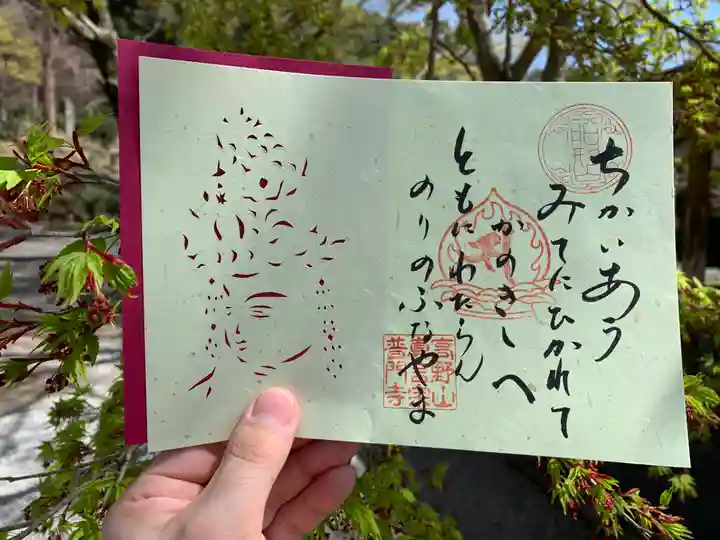 ちかいあう
みてにひかれて
かのきしへ
ともにわたらん
のりのふなやま
高野山
普門寺